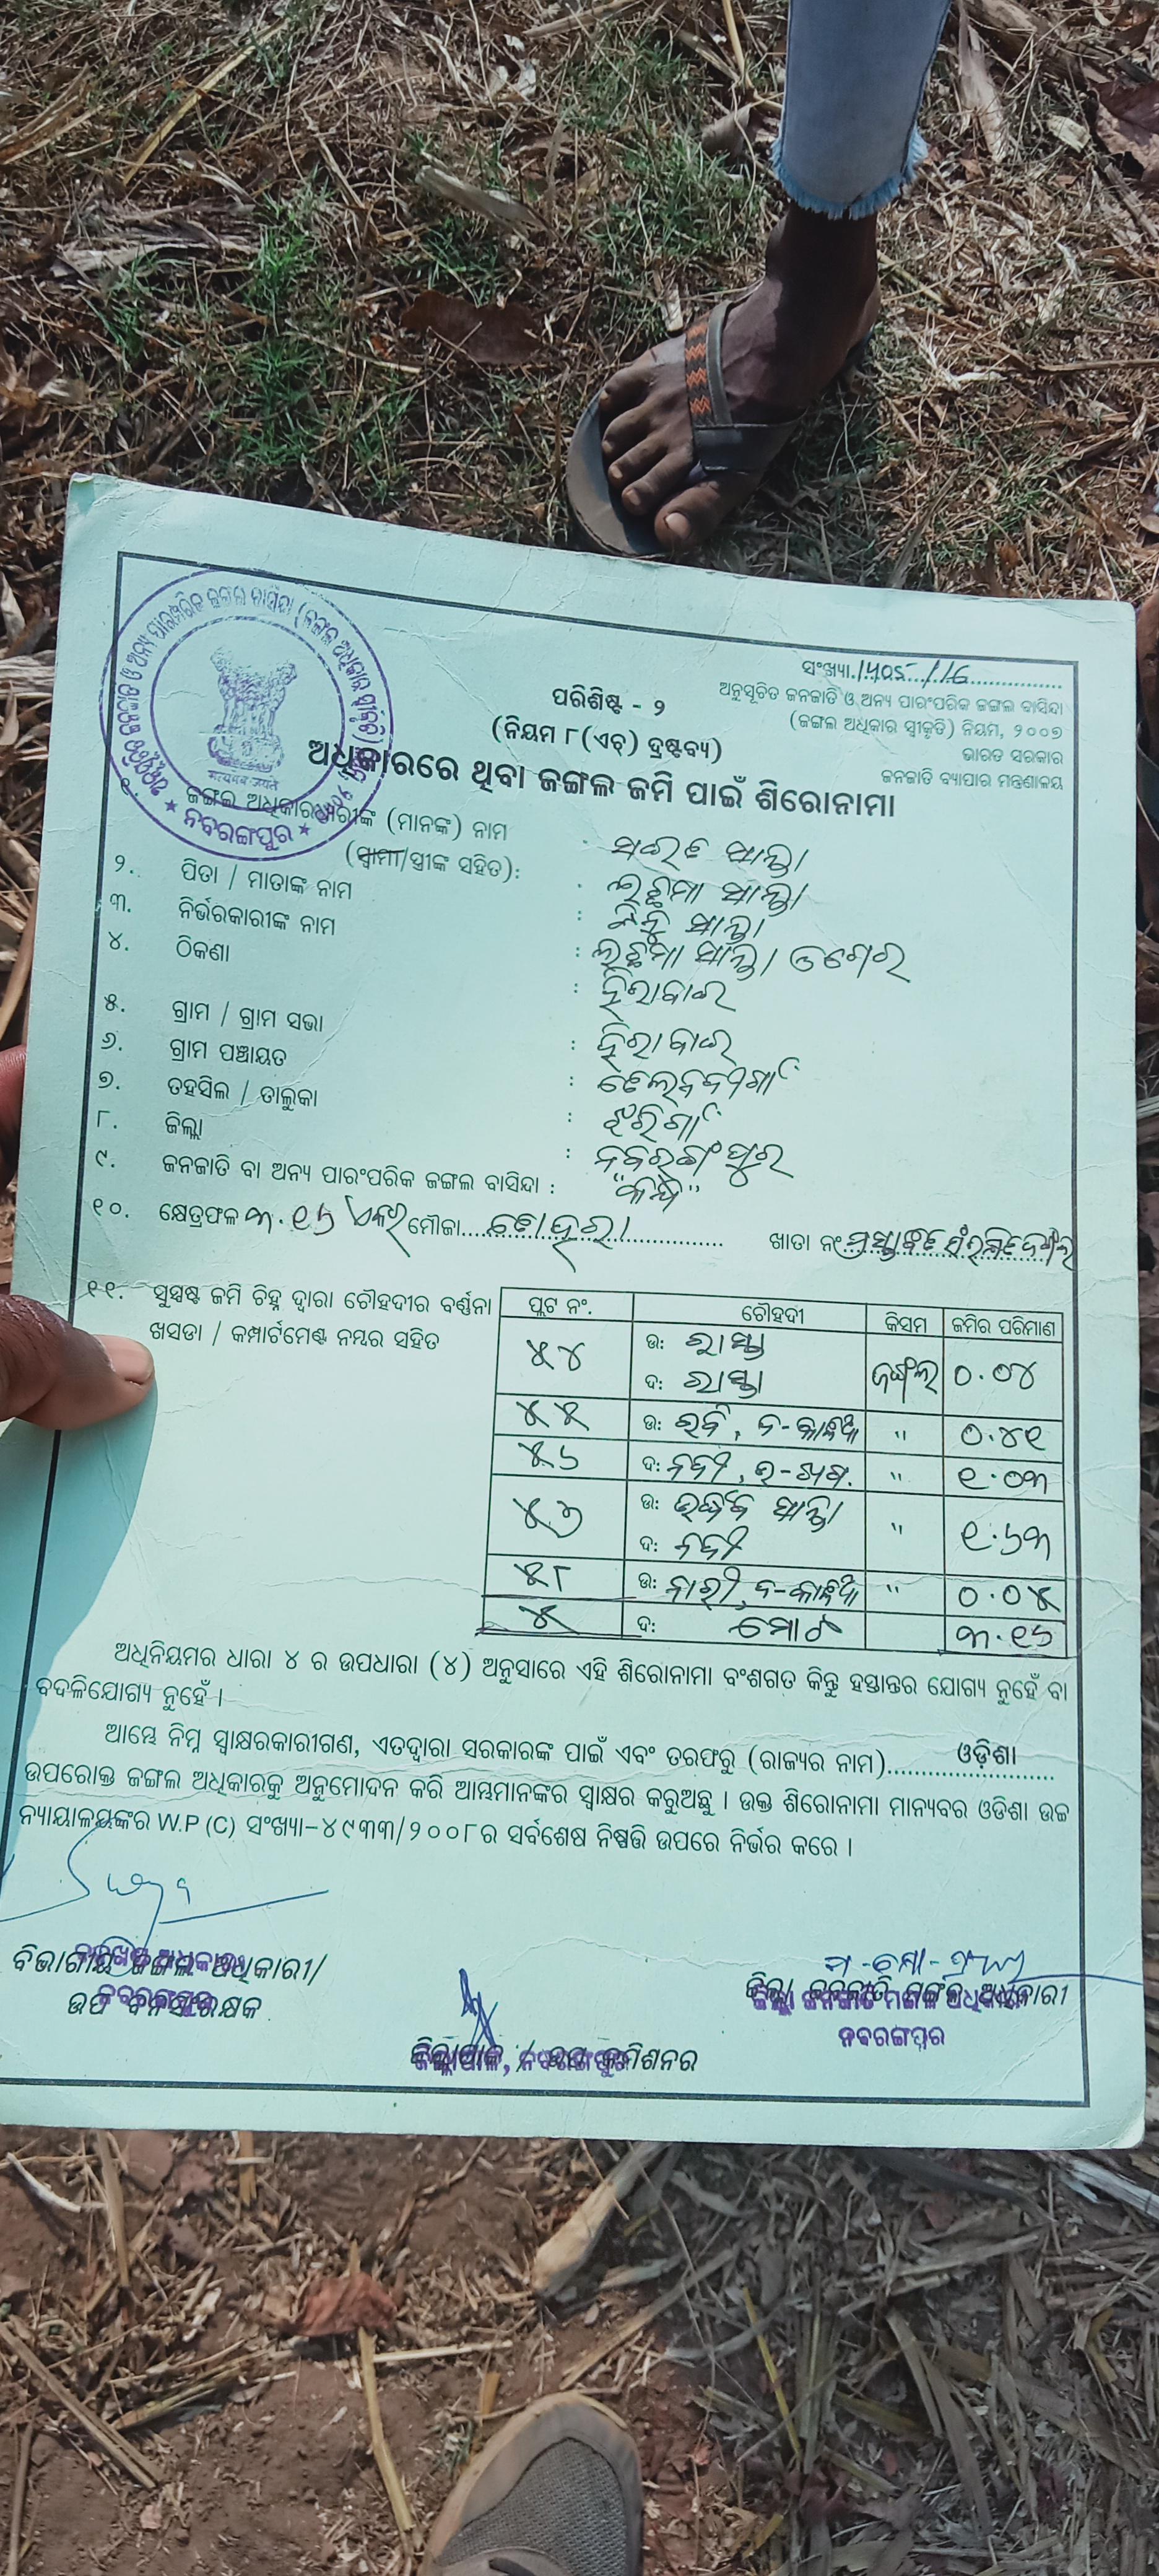 ସଂଖ୍ୟା
ଅନୁସୂଚିତ ଜନଜାତି ଓ ଅନ୍ୟ ପାରଂପରିକ ଜଙ୍ଗଲ ବାସିନ୍ଦା
(ଜଙ୍ଗଲ ଅଧିକାର ସ୍ୱୀକୃତି) ନିୟମ, ୨୦୦୭
ଭାରତ ସରକାର
ଜନଜାତି ବ୍ୟାପାର ମନ୍ତ୍ରଣାଳୟ
ପରିଶିଷ୍ଟ - ୨
(ନିୟମ ୮(ଏଚ୍) ଦ୍ରଷ୍ଟବ୍ୟ)
ଅଧିକାରରେ ଥିବା ଜଙ୍ଗଲ ଜମି ପାଇଁ ଶିରୋନାମା
ନବରଙ୍ଗପୁର
୧. ଜଙ୍ଗଲ ଅଧିକାରଧାରୀଙ୍କ (ମାନଙ୍କ) ନାମ : ସାନ୍ତା
(ସ୍ୱାମୀ/ସ୍ତ୍ରୀଙ୍କ ସହିତ): ଲଛମା ସାନ୍ତା
୨. ପିତା / ମାତାଙ୍କ ନାମ : ସାନ୍ତା
୩. ନିର୍ଭରକାରୀଙ୍କ ନାମ : ଲଛମା ସାନ୍ତା
୪. ଠିକଣା : ହିରାବାଇ
୫. ଗ୍ରାମ / ଗ୍ରାମ ସଭା : ହିରାବାଇ
୬. ଗ୍ରାମ ପଞ୍ଚାୟତ :
୭. ତହସିଲ / ତାଲୁକା : ଝରିଗାଁ
୮. ଜିଲ୍ଲା : ନବରଙ୍ଗପୁର
୯. ଜନଜାତି ବା ଅନ୍ୟ ପାରଂପରିକ ଜଙ୍ଗଲ ବାସିନ୍ଦା : "କନ୍ଧ"
୧୦. କ୍ଷେତ୍ରଫଳ ୩.୧୬ ଏକର ମୌଜା ଖାତା ନଂ
୧୧. ସୁସ୍ପଷ୍ଟ ଜମି ଚିହ୍ନ ଦ୍ୱାରା ଚୌହଦୀର ବର୍ଣ୍ଣନା
ଖସଡା / କମ୍ପାର୍ଟମେଣ୍ଟ ନମ୍ବର ସହିତ
ପ୍ଲଟ ନଂ. ଚୌହଦୀ କିସମ ଜମିର ପରିମାଣ
୫୪ ଉ: ରାସ୍ତା ଜଙ୍ଗଲ ୦.୦୪
ଦ: ରାସ୍ତା
୫୫ ଉ: ରବି, " ୦.୪୧
୫୬ ଦ: ନଦୀ, " ୧.୦୩
୫୭ ଉ: ସାନ୍ତା " ୧.୬୩
ଦ: ନଦୀ
୫୮ ଉ: " ୦.୦୫
୫ ଦ: ମୋଟ ୩.୧୬
ଅଧିନିୟମର ଧାରା ୪ ର ଉପଧାରା (୪) ଅନୁସାରେ ଏହି ଶିରୋନାମା ବଂଶଗତ କିନ୍ତୁ ହସ୍ତାନ୍ତର ଯୋଗ୍ୟ ନୁହେଁ ବା
ବଦଳିଯୋଗ୍ୟ ନୁହେଁ ।
ଆମ୍ଭେ ନିମ୍ନ ସ୍ୱାକ୍ଷରକାରୀଗଣ, ଏତଦ୍ୱାରା ସରକାରଙ୍କ ପାଇଁ ଏବଂ ତରଫରୁ (ରାଜ୍ୟର ନାମ)......ଓଡ଼ିଶା......
ଉପରୋକ୍ତ ଜଙ୍ଗଲ ଅଧିକାରକୁ ଅନୁମୋଦନ କରି ଆମ୍ଭମାନଙ୍କର ସ୍ୱାକ୍ଷର କରୁଅଛୁ । ଉକ୍ତ ଶିରୋନାମା ମାନ୍ୟବର ଓଡିଶା ଉଚ୍ଚ
ନ୍ୟାୟାଳୟଙ୍କର W.P (C) ସଂଖ୍ୟା-୪୯୩୩/୨୦୦୮ର ସର୍ବଶେଷ ନିଷ୍ପତ୍ତି ଉପରେ ନିର୍ଭର କରେ ।
ବିଭାଗୀୟ ଜଙ୍ଗଲ ଅଧିକାରୀ/
ଉପ ବନସଂରକ୍ଷକ
ଜିଲ୍ଲା ଜନଜାତି ମଙ୍ଗଳ ଅଧିକାରୀ
ନବରଙ୍ଗପୁର
ଜିଲ୍ଲାପାଳ / ଉପ କମିଶନର